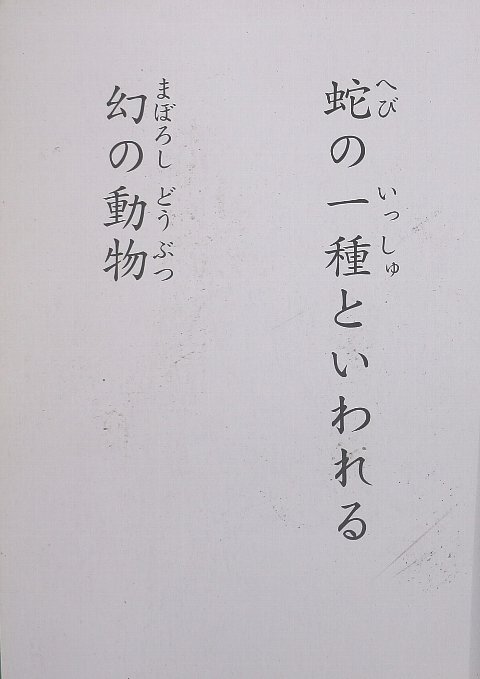 蛇の一種といわれる
へび いっしゅ
幻の動物
まぼろし どうぶつ